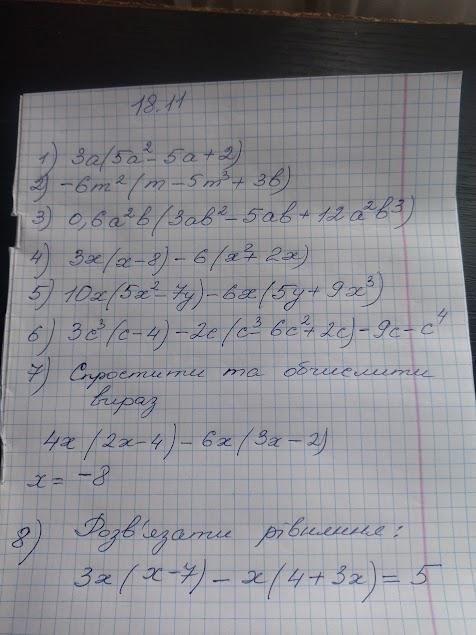 18.11
1) 3a(5a² - 5a + 2)
2) -6m² (m - 5m³ + 3b)
3) 0,6a²b (3ab² - 5ab + 12a²b³)
4) 3x(x-8) - 6(x² + 2x)
5) 10x(5x² - 7y) - 6x(5y + 9x³)
6) 3c³(c-4) - 2c(c³ - 6c² + 2c) - 9c - c⁴
7) Спростити та обчислити
вираз
4x(2x-4) - 6x(3x-2)
x = -8
8) Розв'язати рівняння:
3x(x-7) - x(4+3x) = 5